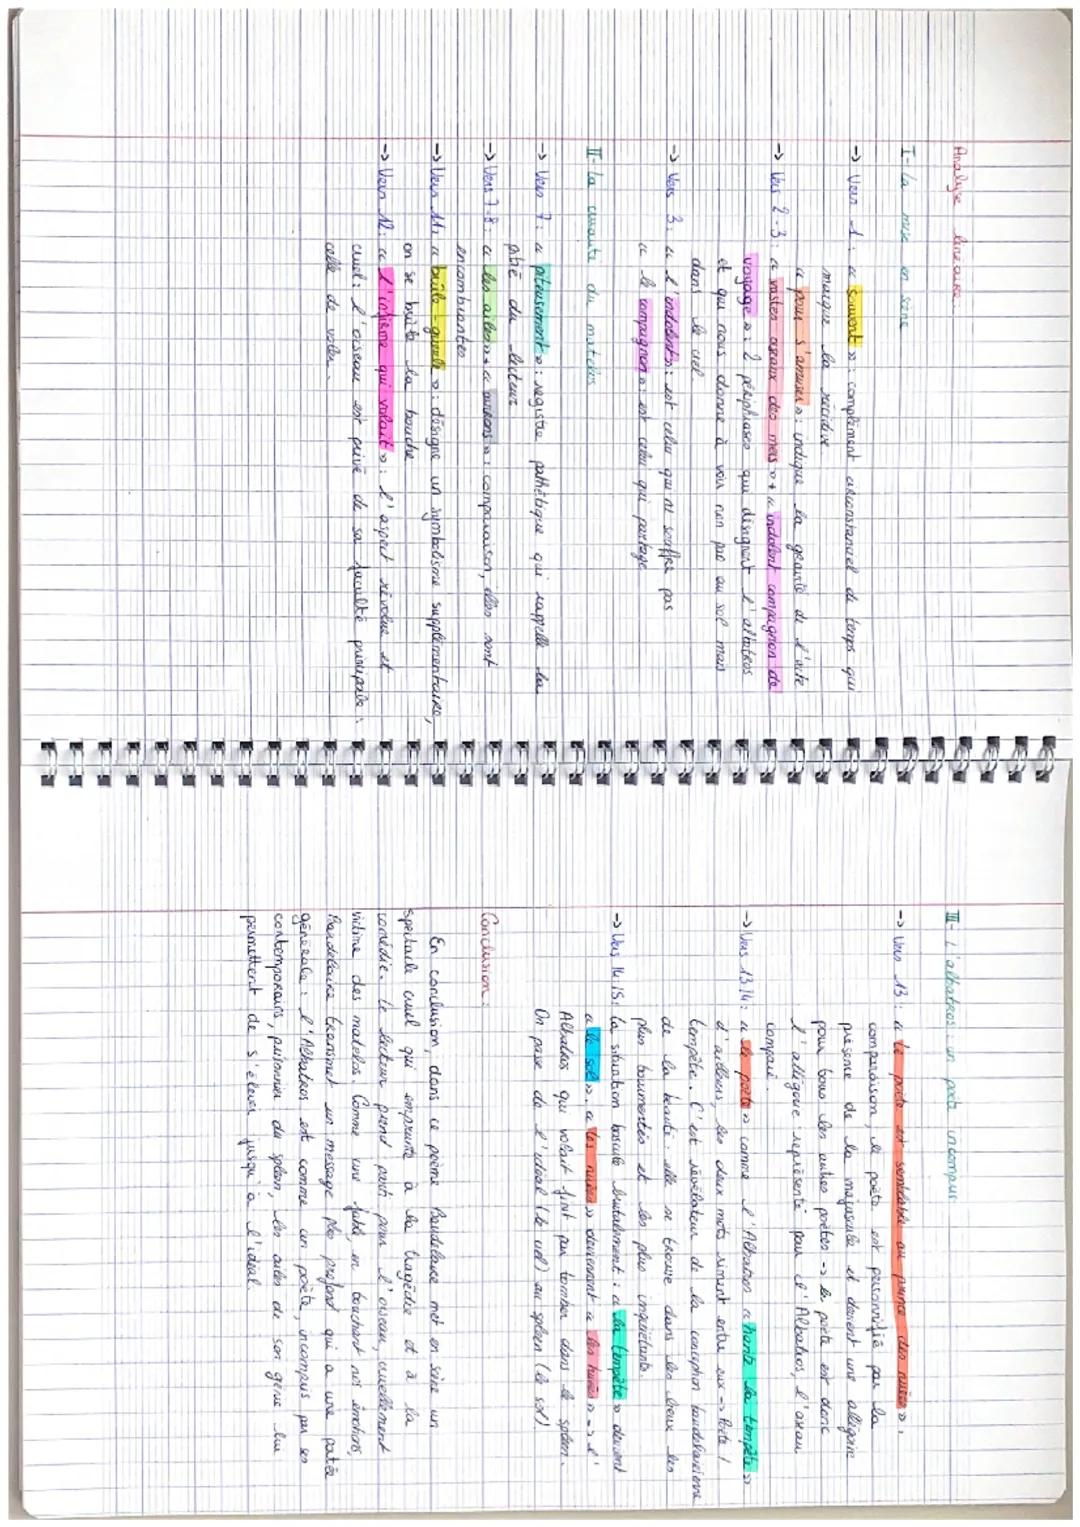 Analyse linéaire:
I- La mise en scène
-> Vers 1: « Souvent »: complément circonstanciel de temps qui
marque la récidive
« pour s'amuser »: indique la gravité de l'acte
-> Vers 2-3: « vastes oiseaux des mers » + « indolent compagnon de
voyage »: 2 périphrases qui désignent l'albatros
et qui nous donne à voir non pas au sol mais
dans le ciel
-> Vers 3: « l'indolent »: est celui qui ne souffre pas
« le compagnon »: est celui qui partage
II- La cruauté du matelos
-> Vers 7: « piteusement »: registre pathétique qui rappelle la
pitié du lecteur
-> Vers 7-8: « les ailes » + « avirons »: comparaison, elles sont
encombrantes
-> Vers 11: « brûle-gueule »: désigne un symbolisme supplémentaire,
on se brûle la bouche
-> Vers 12: « l'infirme qui volait »: l'aspect révolue et
cruel: l'oiseau est privé de sa faculté principale:
celle de voler.
III- L'albatros: un poète incompris
-> Vers 13: « Le poète est semblable au prince des nuées »,
comparaison, le poète est personnifié par la
présence de la majuscule et devient une allégorie
pour tous les autres poètes -> le poète est donc
l'allégorie représenté par l'Albatros, l'oiseau
comparé.
-> Vers 13.14: « le poète » comme l'Albatros « hante la tempête »
d'ailleurs, les deux mots riment entre eux -> Poète /
tempête. C'est révélateur de la conception baudelairienne
de la beauté: elle se trouve dans les lieux les
plus tourmentés et les plus inquiétants.
-> Vers 14.15: La situation bascule brutalement: « la tempête » devient
« le sol », « les nuées » deviennent « les huées » -> l'
Albatros qui volait finit par tomber dans le spleen.
On passe de l'idéal (le ciel) au spleen (le sol)
Conclusion:
En conclusion, dans ce poème Baudelaire met en scène un
spectacle cruel qui emprunte à la tragédie et à la
comédie. Le lecteur prend parti pour l'oiseau, cruellement
victime des matelos. Comme une fable, en touchant nos émotions,
Baudelaire transmet un message plus profond qui a une portée
générale: l'Albatros est comme un poète, incompris par ses
contemporains, prisonnier du spleen, les ailes de son génie lui
permettent de s'élever jusqu'à l'idéal.